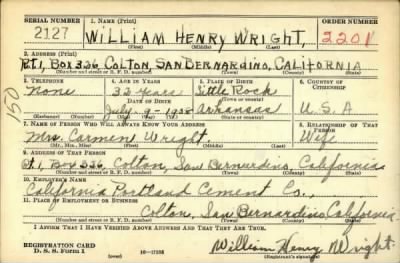 SERIAL NUMBER 1. NAME (Print) ORDER NUMBER
2127 WILLIAM HENRY WRIGHT, 2201
(First) (Middle) (Last)
2. ADDRESS (Print)
RT. 1, BOX 326 COLTON, SAN BERNARDINO, CALIFORNIA
(Number and street or R. F. D. number) (Town) (County) (State)
3. TELEPHONE 4. AGE IN YEARS 5. PLACE OF BIRTH 6. COUNTRY OF CITIZENSHIP
None 32 Years Little Rock
DATE OF BIRTH (Town or county)
July-9-1908 Arkansas U. S. A
(Mo.) (Day) (Yr.) (State or country)
150
7. NAME OF PERSON WHO WILL ALWAYS KNOW YOUR ADDRESS 8. RELATIONSHIP OF THAT PERSON
Mrs. Carmen Wright Wife
(Mr., Mrs., Miss) (First) (Middle) (Last)
9. ADDRESS OF THAT PERSON
Rt. 1, Box 326, Colton, San Bernardino, California
(Number and street or R. F. D. number) (Town) (County) (State)
10. EMPLOYER'S NAME
California Portland Cement Co.
11. PLACE OF EMPLOYMENT OR BUSINESS
Colton, San Bernardino, California
(Number and street or R. F. D. number) (Town) (County) (State)
I AFFIRM THAT I HAVE VERIFIED ABOVE ANSWERS AND THAT THEY ARE TRUE.
REGISTRATION CARD
D. S. S. Form 1 William Henry Wright
(Registrant's signature)